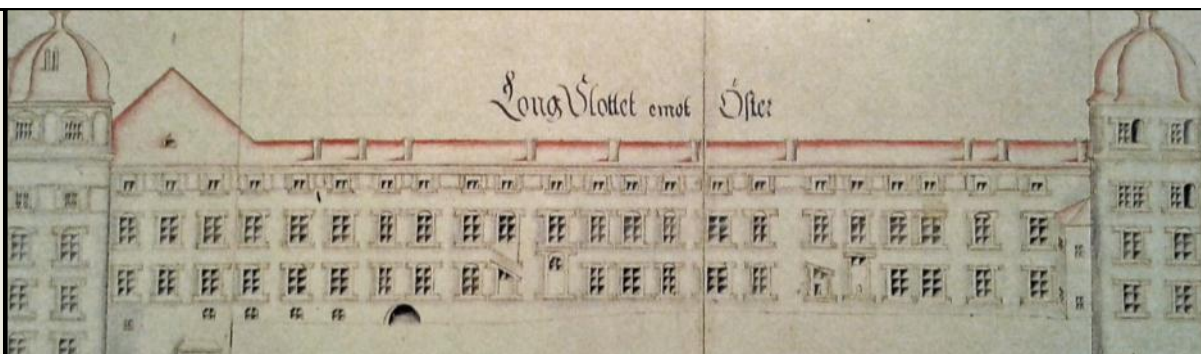 Long Slottet emot Öster